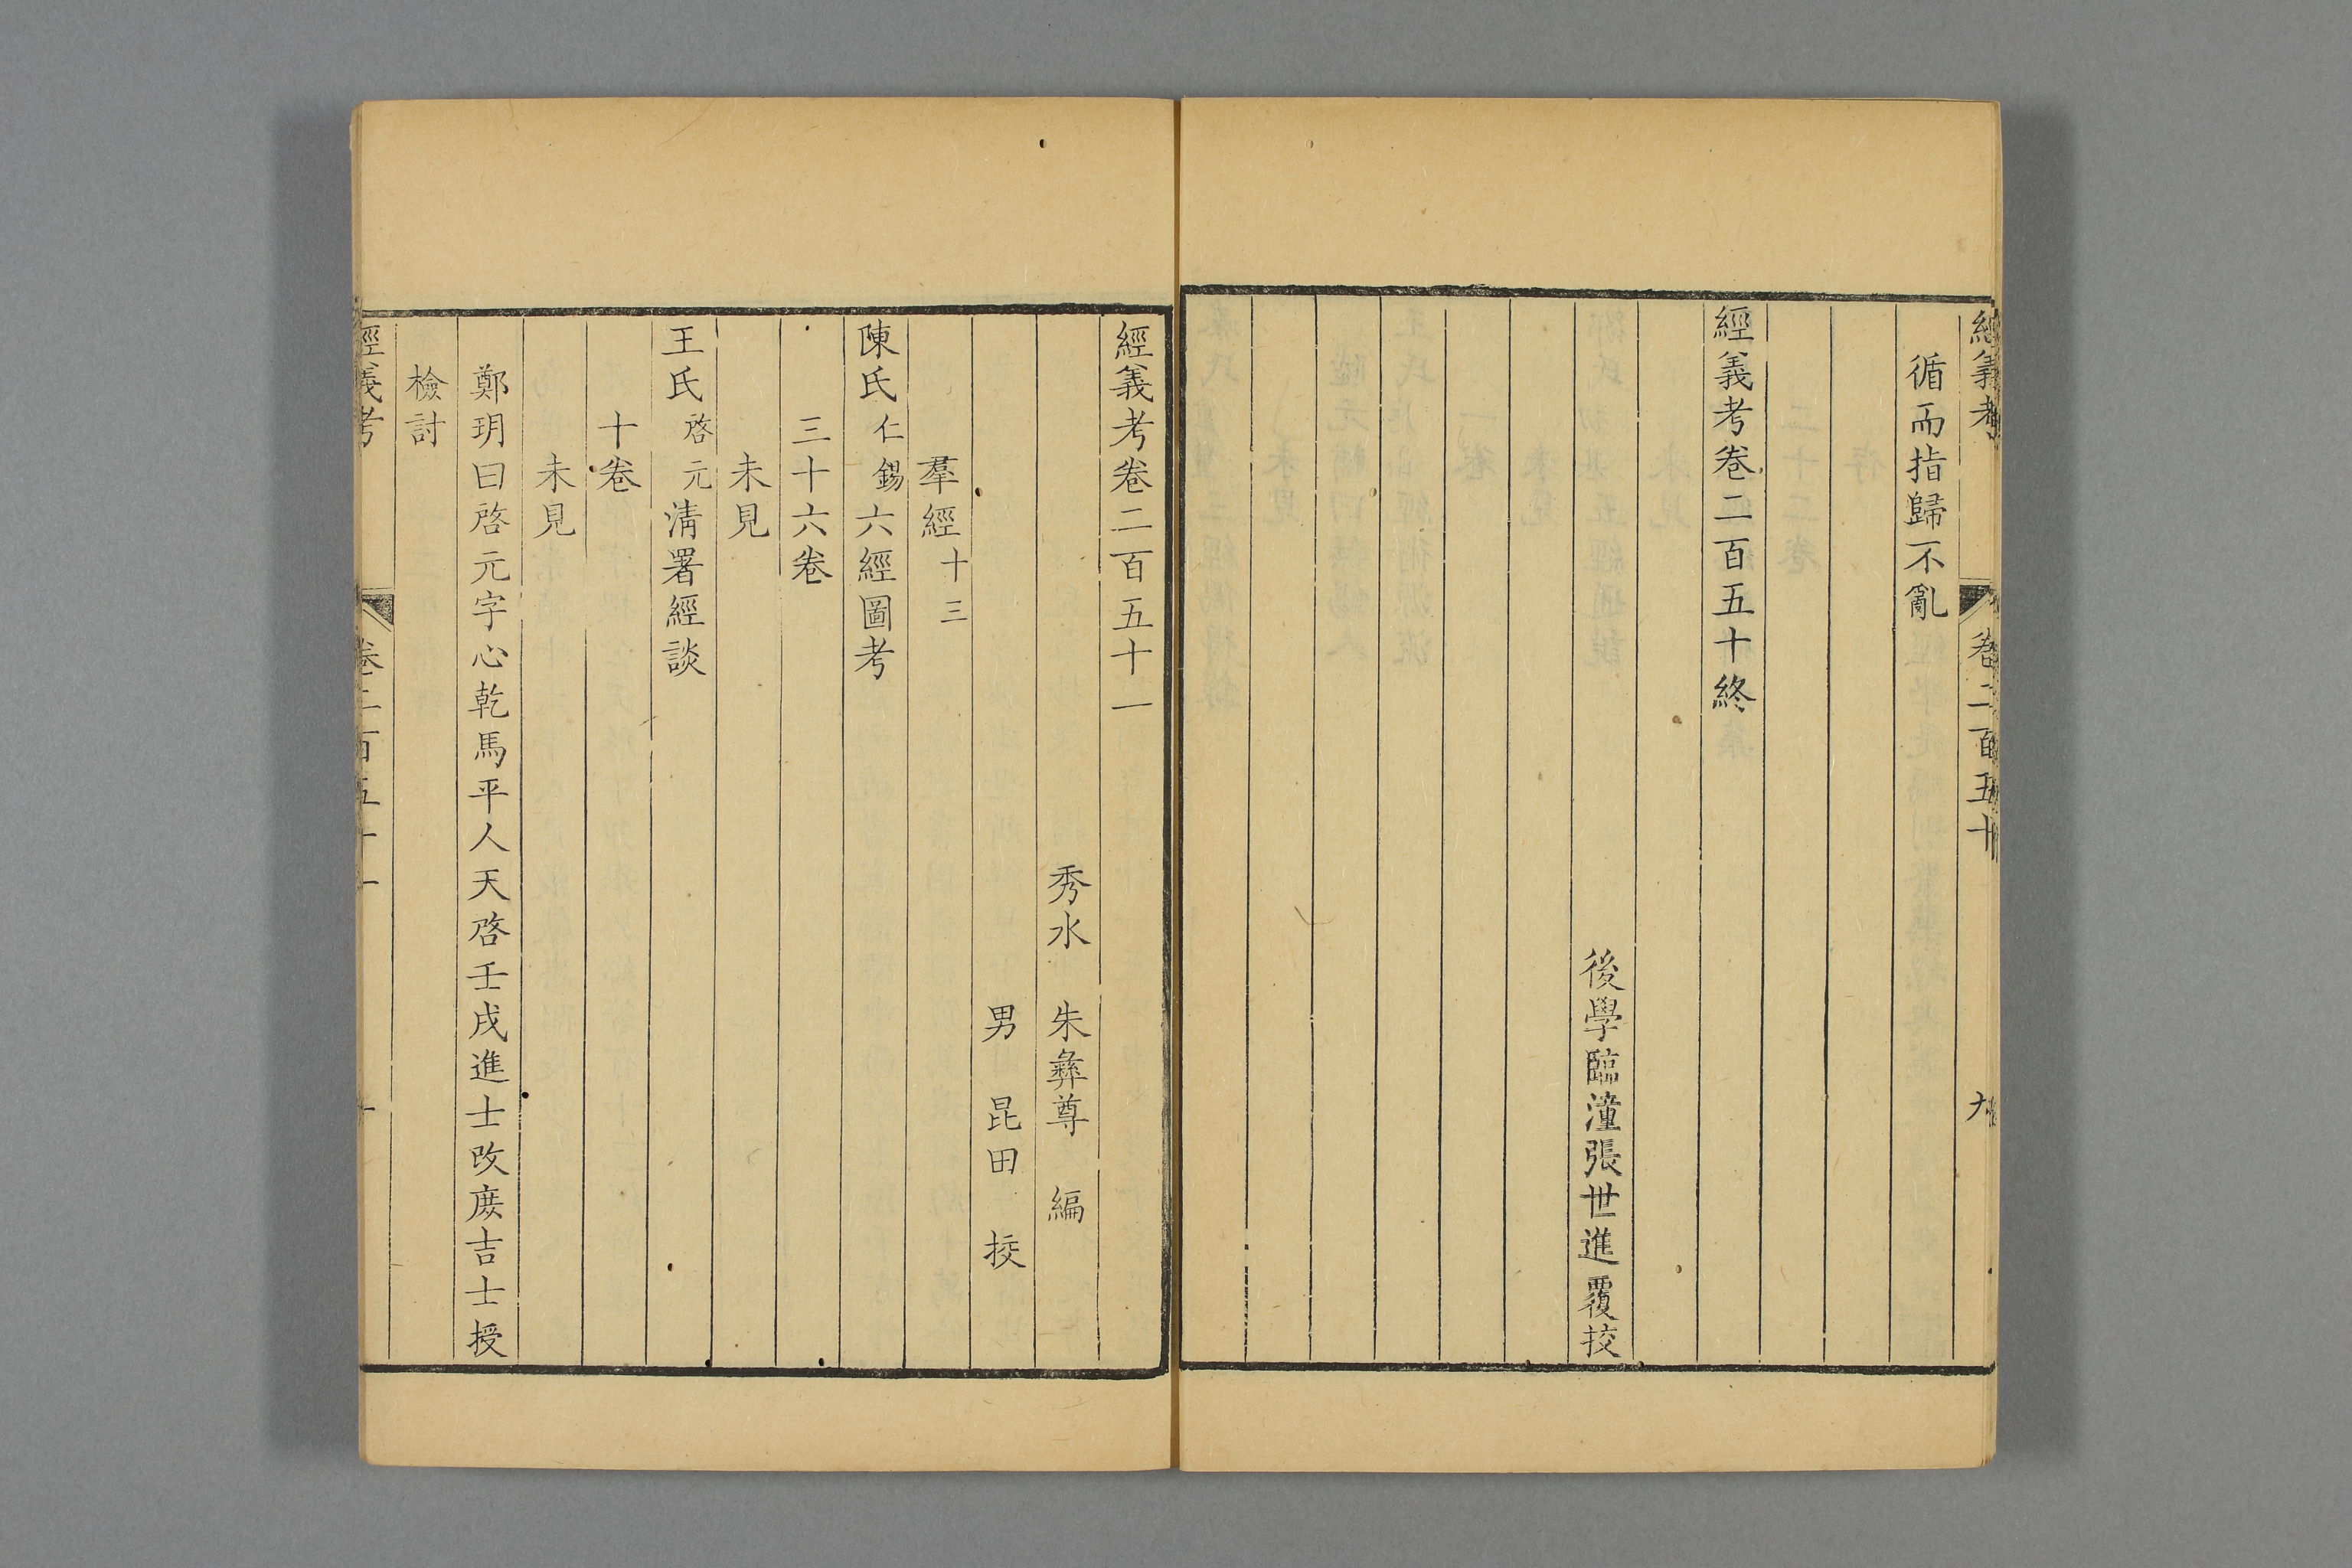 經義考 卷二百五十 九
循而指歸不亂
經義考卷二百五十終
後學臨潼張世進覆挍
經義考卷二百五十一
秀水 朱彝尊 編
男 昆田 挍
羣經十三
陳氏仁錫六經圖考
三十六卷
未見
王氏啓元清署經談
十卷
未見
鄭玥曰啓元字心乾馬平人天啓壬戌進士改庻吉士授
檢討
經義考 卷二百五十一